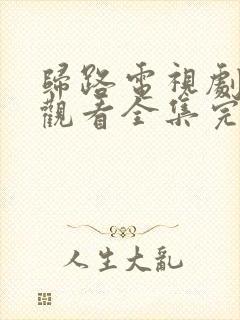 歸路電視劇
觀看全集完
人生大亂